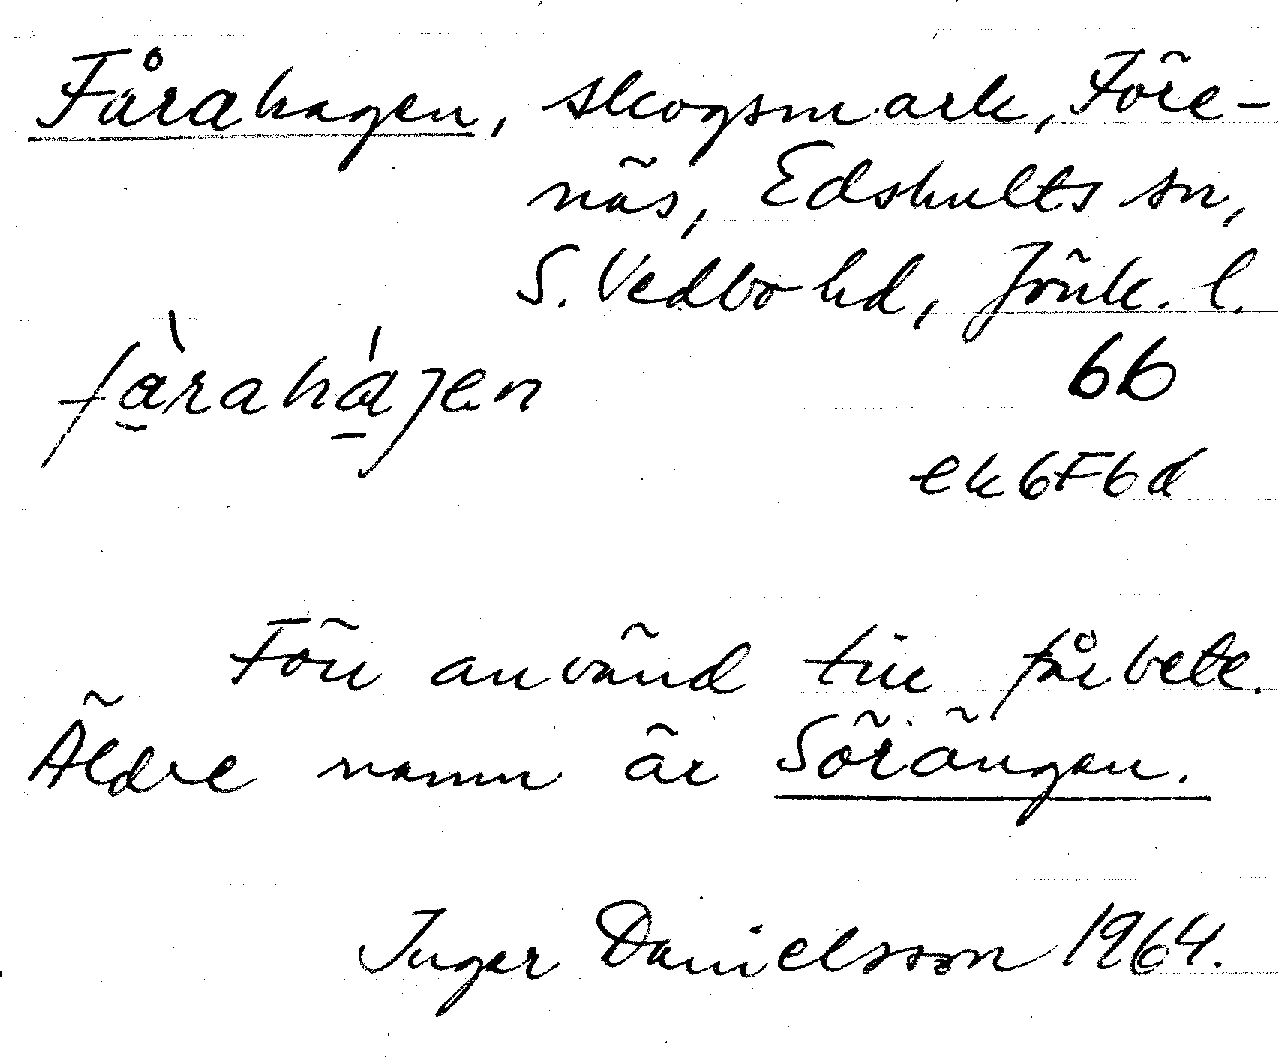 Fårahagen, skogsmark, Före-
näs, Edshults sn,
S. Vedbo hd, Jönk. l.
fàraháɟen 66
ek6F6d
Förr använd till fårbete.
Äldre namn är Sörängen.
Inger Danielsson 1964.